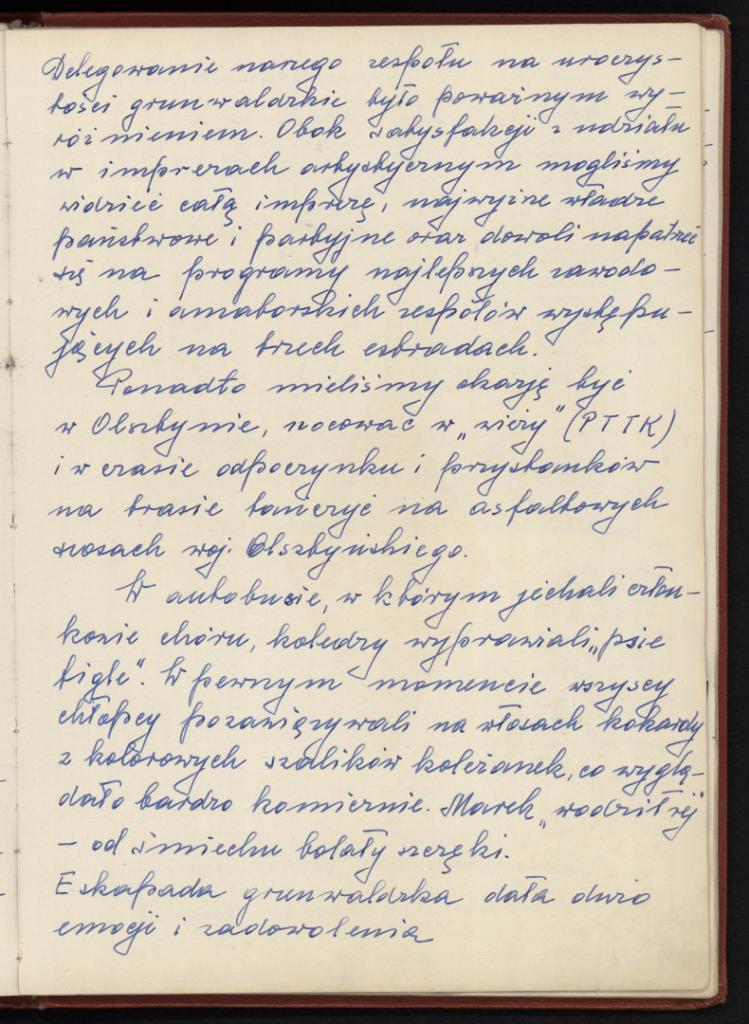 Delegowanie naszego zespołu na uroczys-
tości grunwaldzkie było poważnym wy-
różnieniem. Obok satysfakcji z udziału
w imprezach artystycznym mogliśmy
widzieć całą imprezę, najwyższe władze
państwowe i partyjne oraz dowoli napatrzeć
się na programy najlepszych zawodo-
wych i amatorskich zespołów występu-
jących na trzech estradach.
Ponadto mieliśmy okazję być
w Olsztynie, nocować w „wieży" (PTTK)
i w czasie odpoczynku i przystanków
na trasie tańczyć na asfaltowych
szosach woj. Olsztyńskiego.
W autobusie, w którym jechali człon-
kowie chóru, koledzy wyprawiali „psie
figle". W pewnym momencie wszyscy
chłopcy pozawiązywali na włosach kokardy
z kolorowych szalików koleżanek, co wyglą-
dało bardzo komicznie. Marek „wodził rej"
– od śmiechu bolały szczęki.
Eskapada grunwaldzka dała dużo
emocji i zadowolenia